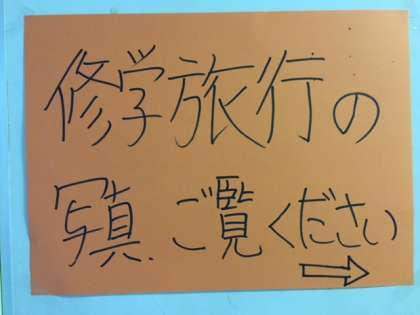 修学旅行の
写真.ご覧ください